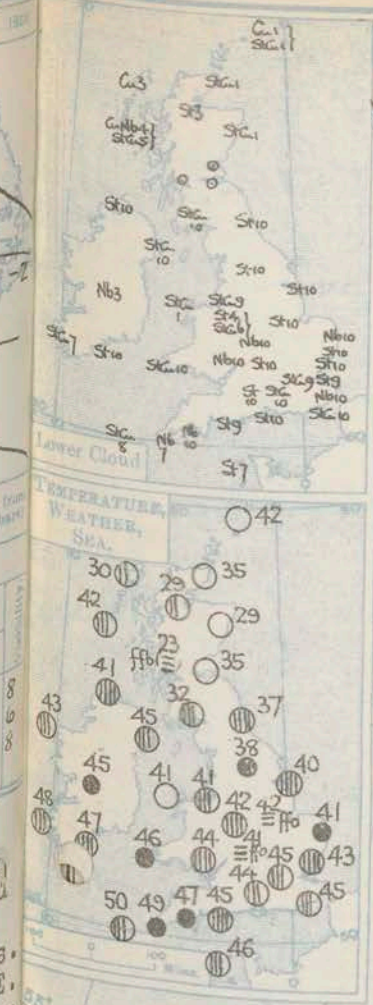 Cu1
StCu1
Cu3
StCu1
St3
CuNb4
StCu5
StCu1
St10
StCu
10
St10
StCu
10
St10
Nb3
StCu
1
StCu9
St10
St4
StCu6
St10
Nb10
StCu7
St10
StCu10
Nb10
St10
Nb10
St10
St10
StCu9
St9
St
10
StCu
10
Nb10
StCu10
StCu
8
Nb
7
Nb
10
St9
St10
Lower Cloud
St7
TEMPERATURE,
WEATHER,
SEA.
42
30
35
29
42
29
23
ffb
41
35
32
43
45
37
38
45
41
41
40
42
42
ffo
48
47
41
46
44
41
ffo
45
43
44
45
50
49
47
45
46
0
100